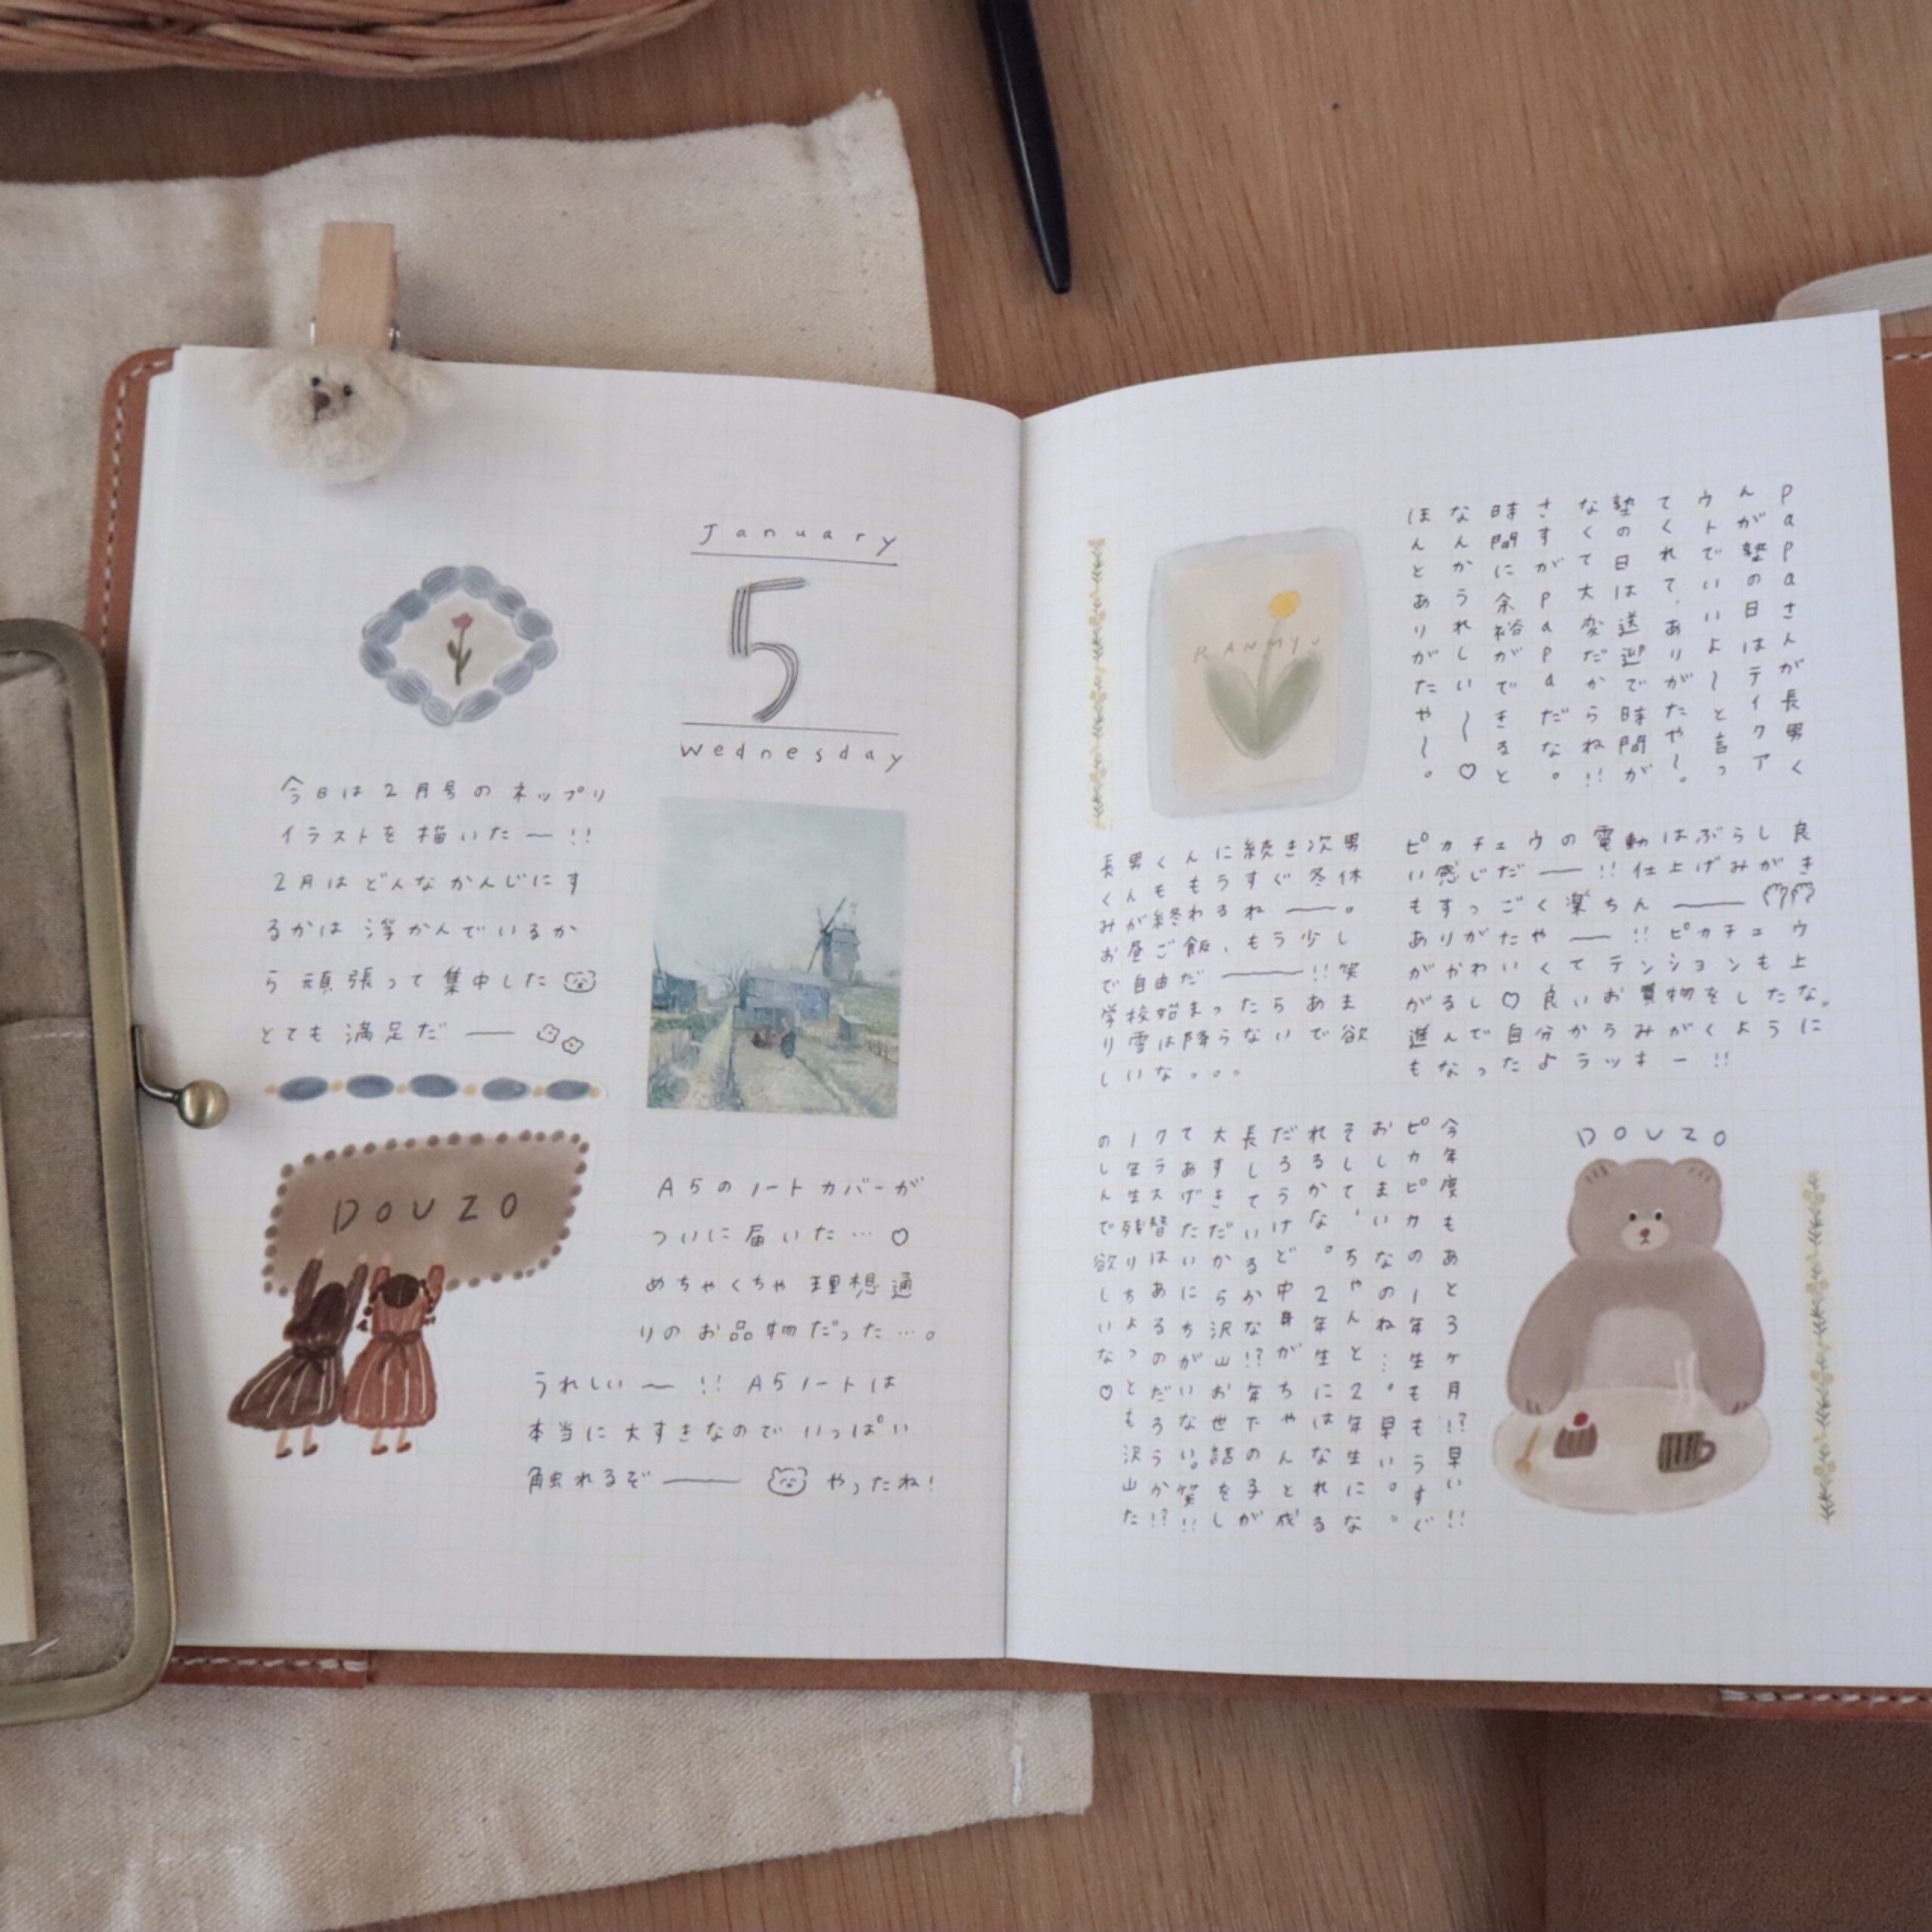 January
5
wednesday
今日は2月号のネップリ
イラストを描いた〜!!
2月はどんなかんじにす
るかは浮かんでいるか
ら頑張って集中した
とても満足だ——
DOUZO
A5のノートカバーが
ついに届いた…♡
めちゃくちゃ理想通
りのお品物だった…。
うれしい〜!! A5ノートは
本当に大すきなのでいっぱい
触れるぞ—— やったね!
RANMYU
papaさんが長男く
んが塾の日はテイクア
ウトでいいよ〜と言っ
てくれて、ありがたや〜。
塾の日は送迎で時間が
なくて大変だからね!!
さすがpapaだな。
時間に余裕ができると
なんかうれしい〜♡
ほんとありがたや〜。
長男くんに続き次男
くんももうすぐ冬休
みが終わるね——。
お昼ご飯、もう少し
で自由だ——!!笑
学校始まったらあま
り雪は降らないで欲
しいな。。。
ピカチュウの電動はぶらし良
い感じだ——!!仕上げみがき
もすっごく楽ちん——
ありがたや——!!ピカチュウ
がかわいくてテンションも上
がるし♡良いお買物をしたな。
進んで自分からみがくように
もなったよラッキー!!
今年度もあと3ヶ月!?早い!!
ピカピカの1年生ももうすぐ
おしまいなのね…。早い。。
そして、ちゃんと2年生にな
れるかな。2年生にはなれる
だろうけど中身がちゃんと成
長しているかな!?年下の子が
大すきだから沢山お世話をし
てあげたいにちがいない。笑!!
クラス替はあるのだろうか!?
1年生残りちょっとも沢山た
のしんで欲しいな♡
DOUZO